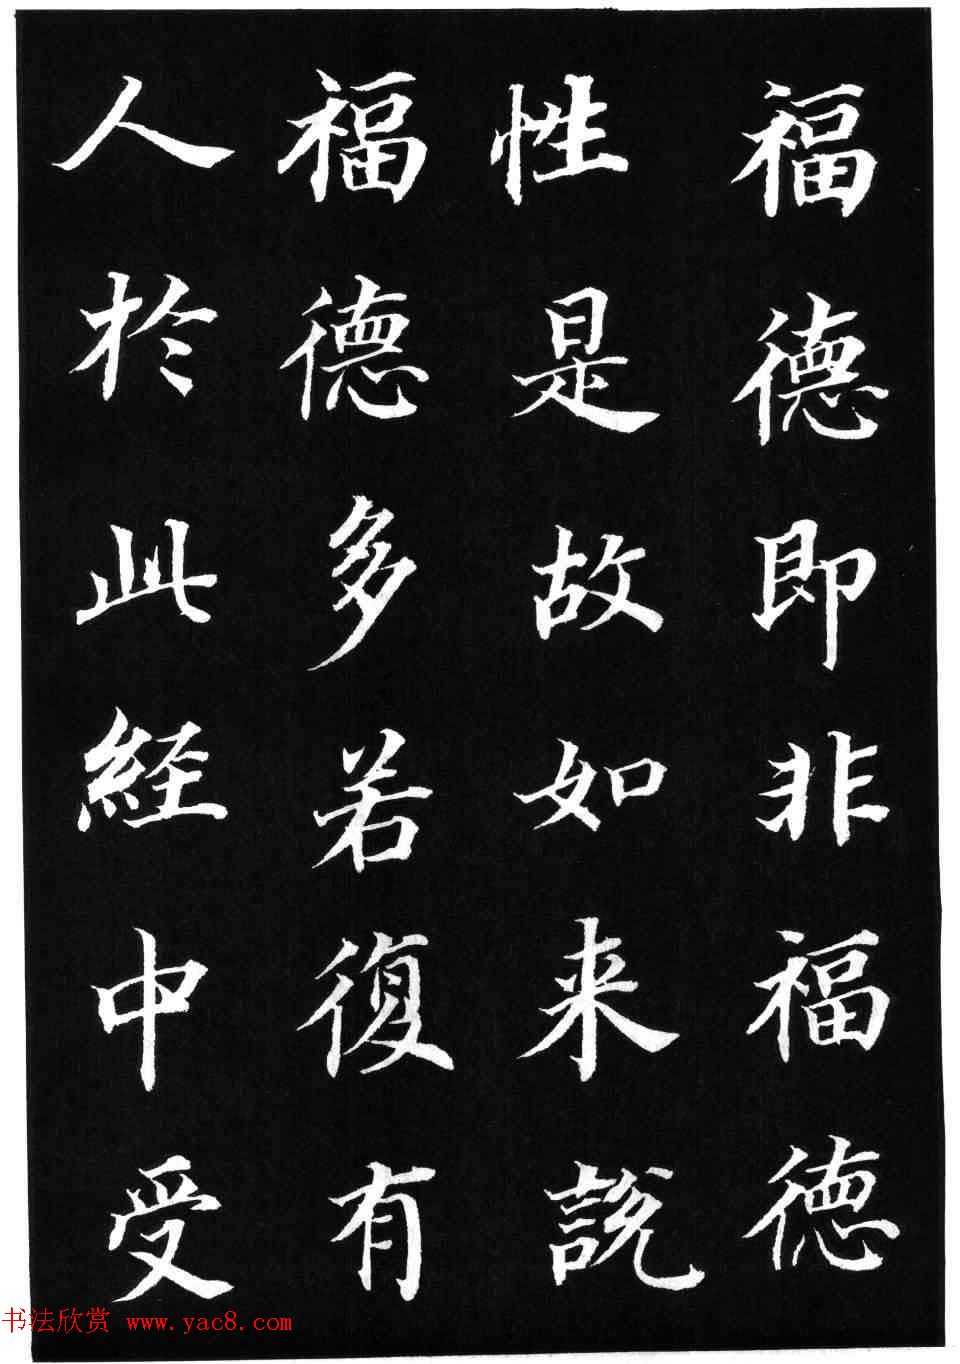 福德即非福德
性是故如来說
福德多若復有
人於此経中受
书法欣赏 www.yac8.com